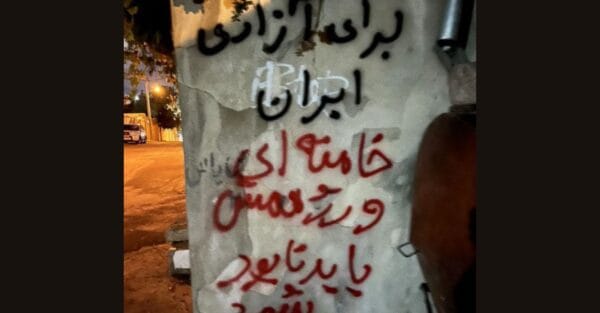 برای آزادی
ایران
خامنه ای
و رژیمش
باید نابود
شود